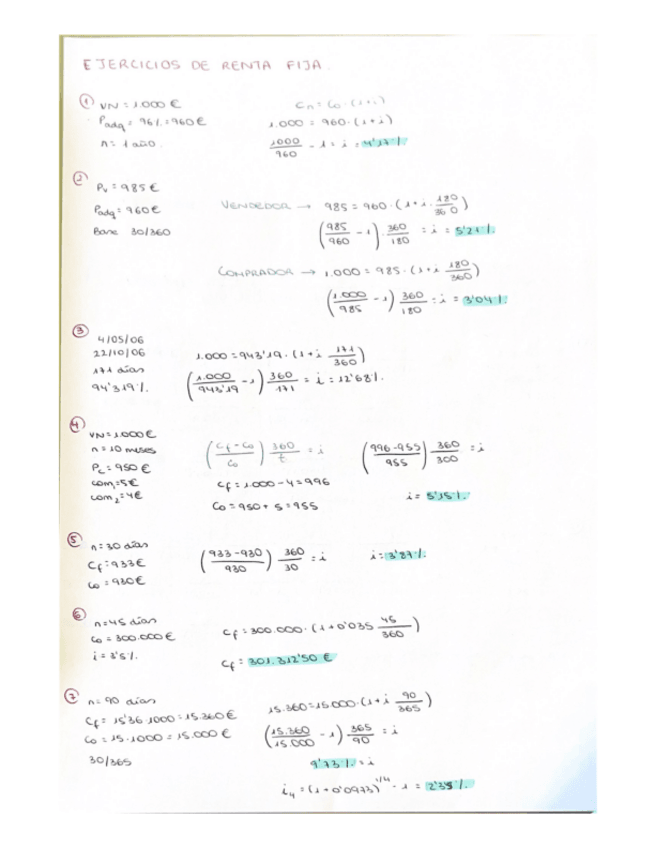 EJERCICIOS DE RENTA FIJA.
① VN = 1.000 €
Padq = 96% = 960 €
n = 1 año.
Cn = Co · (1+i)
1.000 = 960 · (1+i)
1000/960 - 1 = i = 4'17%
② Pv = 985 €
Padq = 960 €
Base 30/360
VENDEDOR → 985 = 960 · (1+i · 180/360)
(985/960 - 1) · 360/180 = i = 5'21%
COMPRADOR → 1.000 = 985 · (1+i 180/360)
(1.000/985 - 1) 360/180 = i = 3'04%
③ 4/05/06
22/10/06
171 días
94'319%
1.000 = 943'19 · (1+i 171/360)
(1.000/943'19 - 1) 360/171 = i = 12'68%
④ VN = 1.000 €
n = 10 meses
Pc = 950 €
com₁ = 5 €
com₂ = 4 €
(Cf - Co/Co) 360/t = i
Cf = 1.000 - 4 = 996
Co = 950 + 5 = 955
(996 - 955/955) 360/300 = i
i = 5'15%
⑤ n = 30 días
Cf = 933 €
Co = 930 €
(933 - 930/930) 360/30 = i
i = 3'87%
⑥ n = 45 días
Co = 300.000 €
i = 3'5%
Cf = 300.000 · (1 + 0'035 45/360)
Cf = 301.312'50 €
⑦ n = 90 días
Cf = 15'36 · 1000 = 15.360 €
Co = 15 · 1000 = 15.000 €
30/365
15.360 = 15.000 · (1+i 90/365)
(15.360/15.000 - 1) 365/90 = i
9'73% = i
i₄ = (1 + 0'0973)^1/4 - 1 = 2'35%